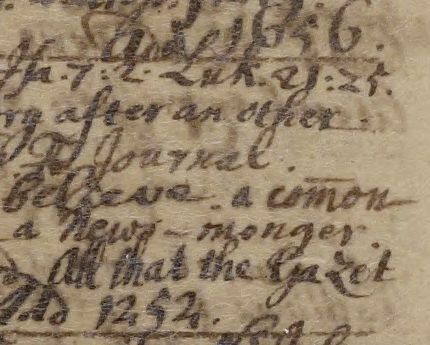 1656.
Isa. 7: 2. Luk. 21: 25.
after an other.
Journal.
believe. a com̄on
a News-monger.
All that the Gazet
1252.